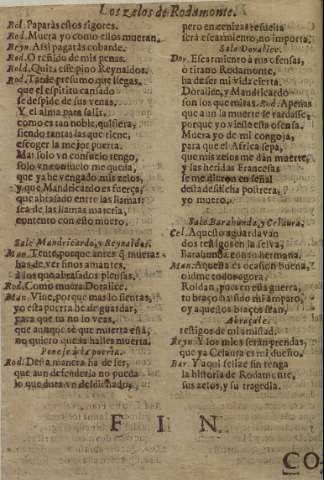 Los zelos de Rodamonte.
Rol. Pararàs estos rigores.
Rod. Muera yo como ellos mueran.
Reyn. Assi pagaràs cobarde.
Rod. O reñido de mis penas.
Rold. Quita essè pino Reynaldos.
Rod. Tarde presumo que llegas,
que el espiritu cansado
se despide de sus venas.
Y el alma para salir,
como es tan noble, quisiera,
siendo tantas las que tiene,
escoger la mejor puerta.
Mas solo vn consuelo tengo,
solo vn consuelo me queda,
que ya he vengado mis zelos,
y que Mandricardo es fuerça,
que abrasado entre las llamas
sea de las llamas materia,
contento con ello muero.
Sale Mandricardo, y Reynaldos.
Man. Tente, porque antes q̃ mueras
has de ver finos amantes,
a los que abrasados piensas.
Rod. Como muera Doralice.
Man. Viue, porque mas lo sientas,
yo esta puerta he de guardar,
para que tu no lo veas,
que aunque sè que muerta està,
no quiero que la halles muerta.
Ponese à la puerta.
Rod. Desta manera ha de ser,
que aun defenderla no pueda
lo que dura vn desdichado,
pero en cenizas resuelta
serà escarmiento, no importa.
Sale Doralice.
Dor. Escarmiento à mis ofensas,
ò tirano Rodamante,
ha de ser mi vida cierta.
Doralice, y Mandricardo
son los que miras. Rod. Apenas
que aun la muerte se tardasse,
porque yo viesse esta ofensa.
Muera yo de mi congoja,
para que el Africa sepa,
que mis zelos me dàn muerte,
y las heridas Francesas
se me dieron en señal
desta desdicha postrera,
yo muero.
Sale Barahunda, y Celaura.
Cel. Aquesto aguardavan
dos testigos en la selva,
Barahunda como hermana.
Man. Aquesta es ocasion buena,
Roldan, pues en esta guerra,
tu braço ha sido mi amparo,
oy aquestos braços sean,
Abraçale.
testigos de mi amistad.
Reyn. Y los mios seràn prendas,
que ya Celaura es mi dueño.
Bar. Y aqui felize fin tenga
la historia de Rodamonte,
sus zelos, y su tragedia.
F I N.
CO